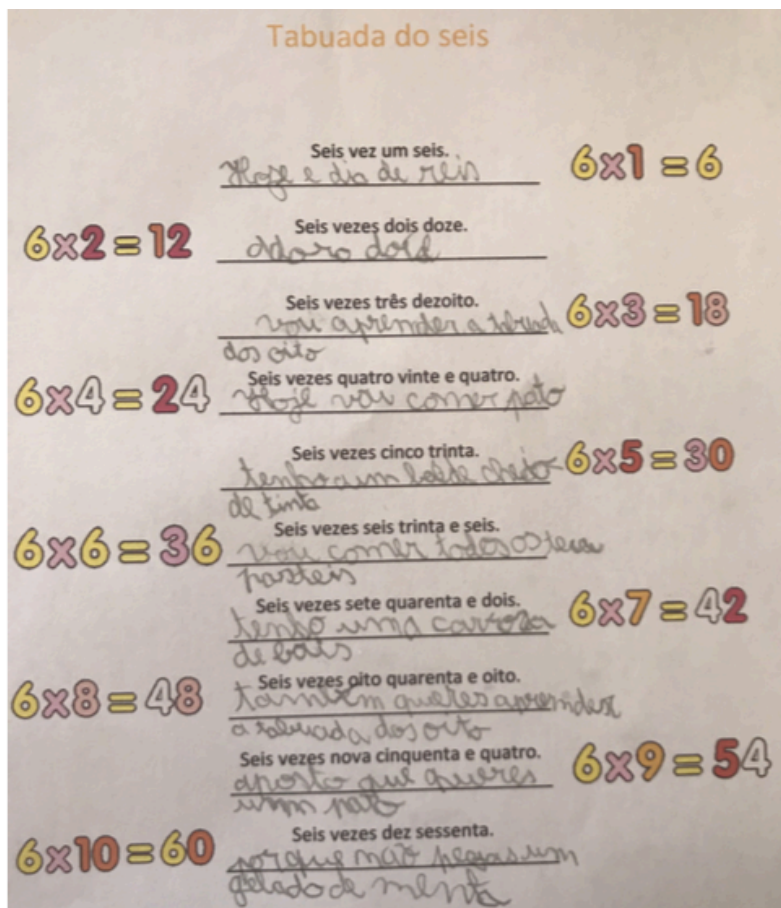 Tabuada do seis
Seis vez um seis.
Hoje e dia de reis
6x1=6
Seis vezes dois doze.
6x2=12
Adoro doce
Seis vezes três dezoito.
6x3=18
vou aprender a tabuada
dos oito
Seis vezes quatro vinte e quatro.
6x4=24
Hoje vou comer pato
Seis vezes cinco trinta.
6x5=30
tenho um balde cheio
de tinta
Seis vezes seis trinta e seis.
6x6=36
vou comer todos os teus
pasteis
Seis vezes sete quarenta e dois.
6x7=42
tenho uma carroça
de bois
Seis vezes oito quarenta e oito.
6x8=48
também queres aprender
a tabuada dos oito
Seis vezes nova cinquenta e quatro.
6x9=54
aposto que queres
um pato
Seis vezes dez sessenta.
6x10=60
porque não pegas um
gelado de menta